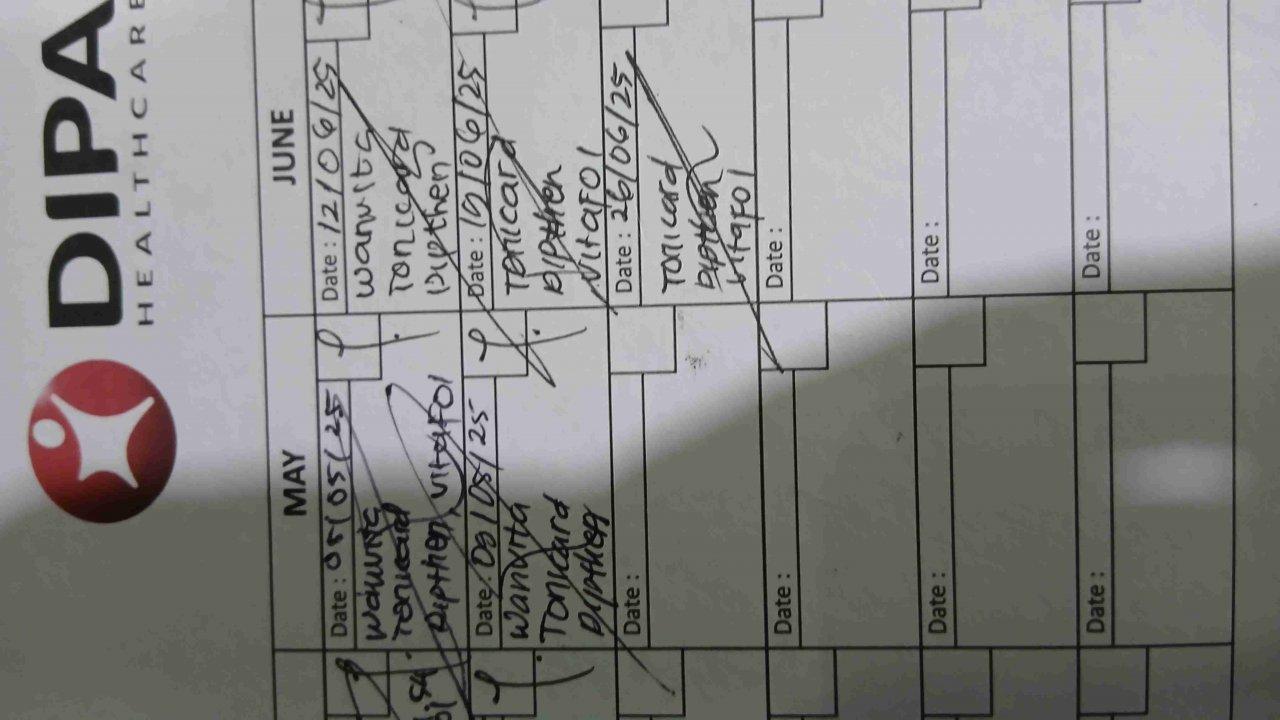 DIPA
HEALTHCARE
MAY
JUNE
Date : 05/05/25
Wanvita
Tonicard
Dipthen, VitaFOl
Date : 09/05/25
Wanvita
Tonicard
Dipthen
Date :
Date :
Date :
Date :
Date : 12/06/25
Wanvita
Tonicard
Dipthen
Date : 19/06/25
Tonicard
Dipthen
VitaFOl
Date : 26/06/25
Tonicard
Dipthen
VitaFOl
Date :
Date :
Date :